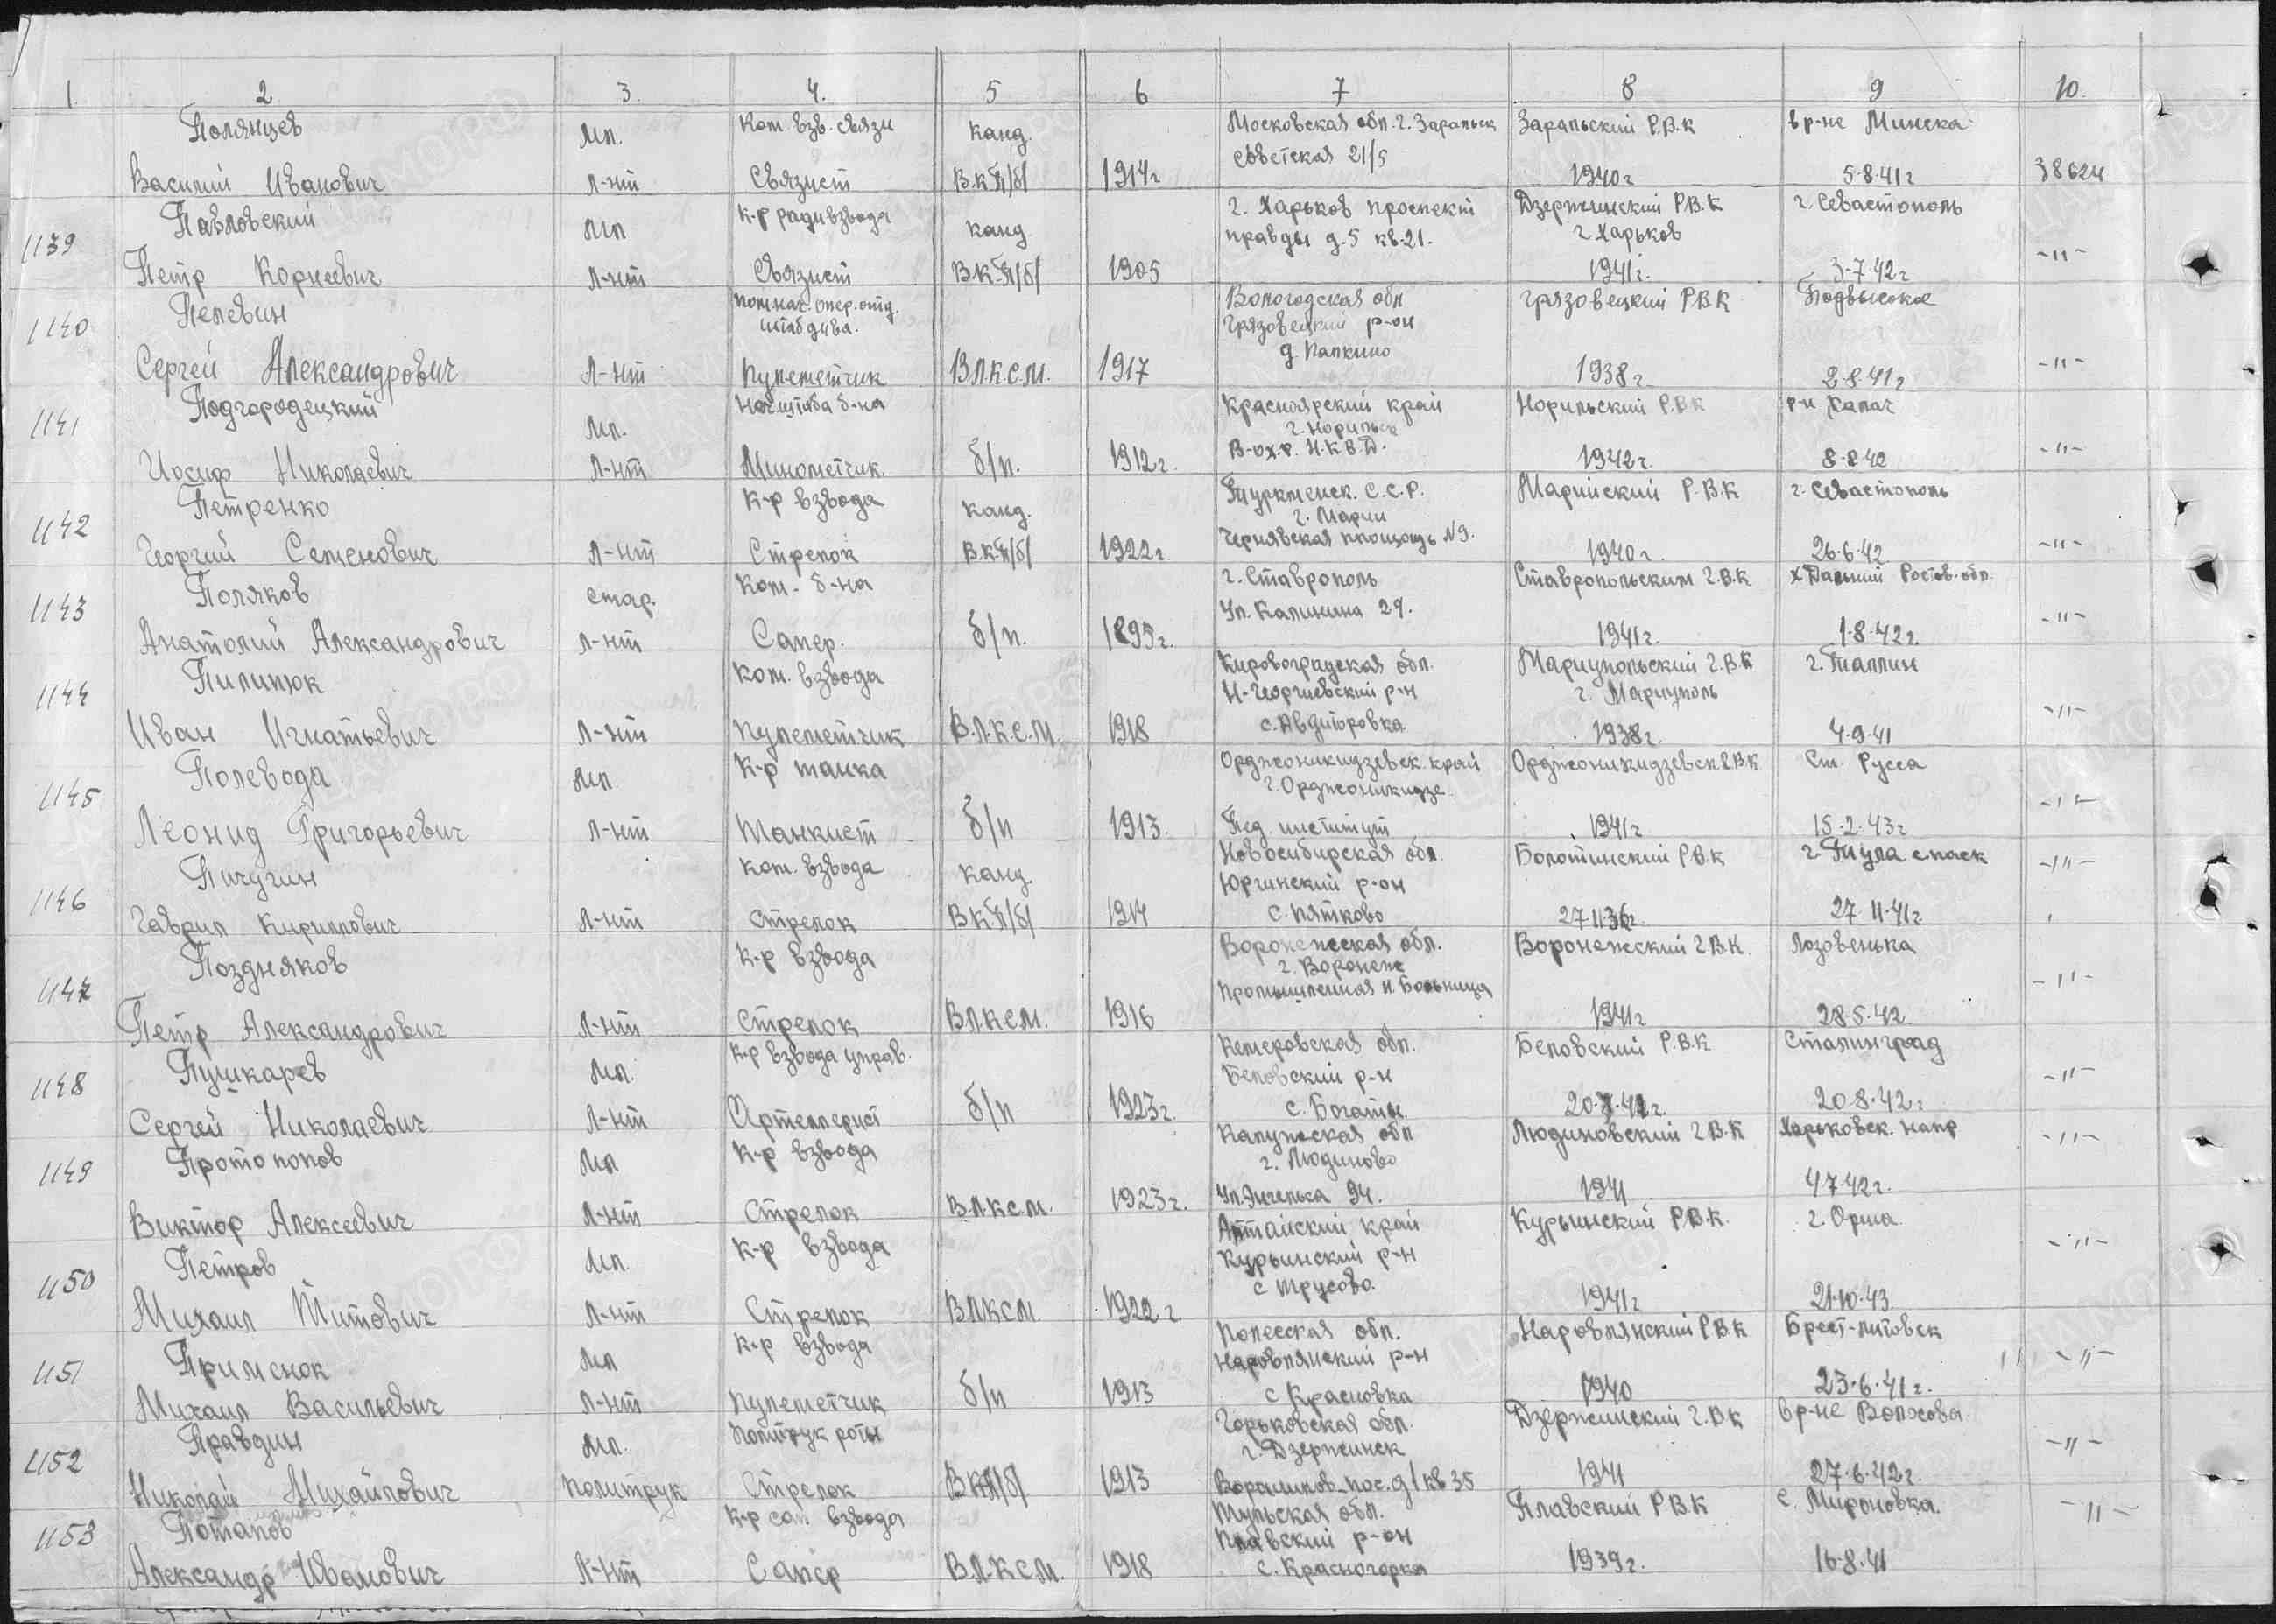 1 2 3. 4. 5 6 7 8 9 10.
Полянцев Мл. Ком. взв. связи канд. Московская обл. г. Зарайск Зарайский Р.В.К в р-не Минска
Советская 21/5
Василий Иванович Л-нт Связист В.К.П/б/ 1914г 1940г 5.8.41г 38624
Павловский Мл К-р радивзвода канд г. Харьков проспект Дзержинский Р.В.К г. Севастополь
1139 правды д.5 кв.21. г Харьков -"-
Петр Корнеевич Л-нт Связист В.К.П/б/ 1905 1941г. 3-7.42г
Пелевин Пом.нач. опер.отд. Вологодская обл Грязовецкий Р.В.К Подвысокое
1140 штаб дива. Грязовецкий р-он
д. Папкино -"-
Сергей Александрович Л-нт Пулеметчик В.Л.К.С.М. 1917 1938г 2.8.41г
Подгородецкий Нач штаба б-на Красноярский край Норильский Р.В.К р-н Калач
1141 Мл. г. Норильск
Иосиф Николаевич Л-нт Минометчик б/п. 1912г. В-ох.р. Н.К.В.Д. 1942г. 8.8.42 -"-
Петренко К-р взвода канд. Туркменск. С.С.Р. Марийский Р.В.К г. Севастополь
1142 г. Марии
Георгий Семенович Л-нт Стрелок В.К.П/б/ 1922г Чернявская площадь №9. 1940г. 26.6.42 -"-
Поляков стар. Ком. б-на г. Ставрополь Ставропольским Г.В.К х Дальний Ростов. обл.
1143 Ул. Калинина 29. -"-
Анатолий Александрович Л-нт Сапер. б/п. 1895г. 1941г. 1.8.42г.
Пилипюк Ком. взвода Кировоградская обл. Мариупольский Г.В.К г. Таллин
1144 Н-Георгиевский р-н г. Мариуполь -"-
Иван Игнатьевич Л-нт Пулеметчик В.Л.К.С.М. 1918 с. Авдиторовка 1938г. 4.9.41
Полевода Мл. К-р танка Орджоникидзевск. край Орджоникидзевск Г.В.К Ст. Русса
1145 г. Орджоникидзе -"-
Леонид Григорьевич Л-нт Танкист б/п 1913. Пед. институт 1941г 15.2.43г
Пичугин Ком. взвода канд. Новосибирская обл. Болотинский Р.В.К г. Тула -"-
1146 Юргинский р-он
Гаврил Кириллович Л-нт Стрелок ВКП/б/ 1914 с. Пятково 27 11 36г. 27 11.41г
Поздняков К-р взвода Воронежская обл. Воронежский Г.В.К. Лозовенька
1147 г. Воронеж -"-
Промышленная Больница
Петр Александрович Л-нт Стрелок ВЛКСМ. 1916 1941г 28.5.42
Пушкарев К-р взвода управ. Кемеровская обл. Беловский Р.В.К Сталинград
1148 Мл. Беловский р-н -"-
Сергей Николаевич Л-нт Артеллерист б/п 1923г. с. Богаты 20.8.42г
Протопопов Мл К-р взвода Калужская обл Людиновский Г.В.К Харьковск. напр -"-
1149 г. Людиново
Виктор Алексеевич Л-нт Стрелок ВЛКСМ. 1923г. Ул. Энгельса 94. 1941 4 7 42г.
Петров Мл. К-р взвода Алтайский край Курьинский Р.В.К. г. Орша -"-
1150 Курьинский р-н
с Трусово.
Михаил Титович Л-нт Стрелок ВЛКСМ 1922г 1941г 21.10.43
Применок Мл К-р взвода Полесская обл. Наровлянский Р.В.К Брест-Литовск
1151 Наровлянский р-н -"-
Михаил Васильевич Л-нт Пулеметчик б/п 1913 с Красновка 1940 23.6.41г.
Правдин Мл. Политрук роты Горьковская обл. Дзержинский Г.В.К в р-не Волхова
1152 г. Дзержинск -"-
Николай Михайлович Политрук Стрелок ВКП/б/ 1913 Ворошилов. пос. д 1 кв 35 1941 27.6.42г.
Потапов К-р сап. взвода Тульская обл. Плавский Р.В.К с. Мироновка. -"-
1153 Плавский р-он
Александр Иванович Л-нт Сапер В.Л.К.С.М. 1918 с. Красногорка 1939г. 16.8.41